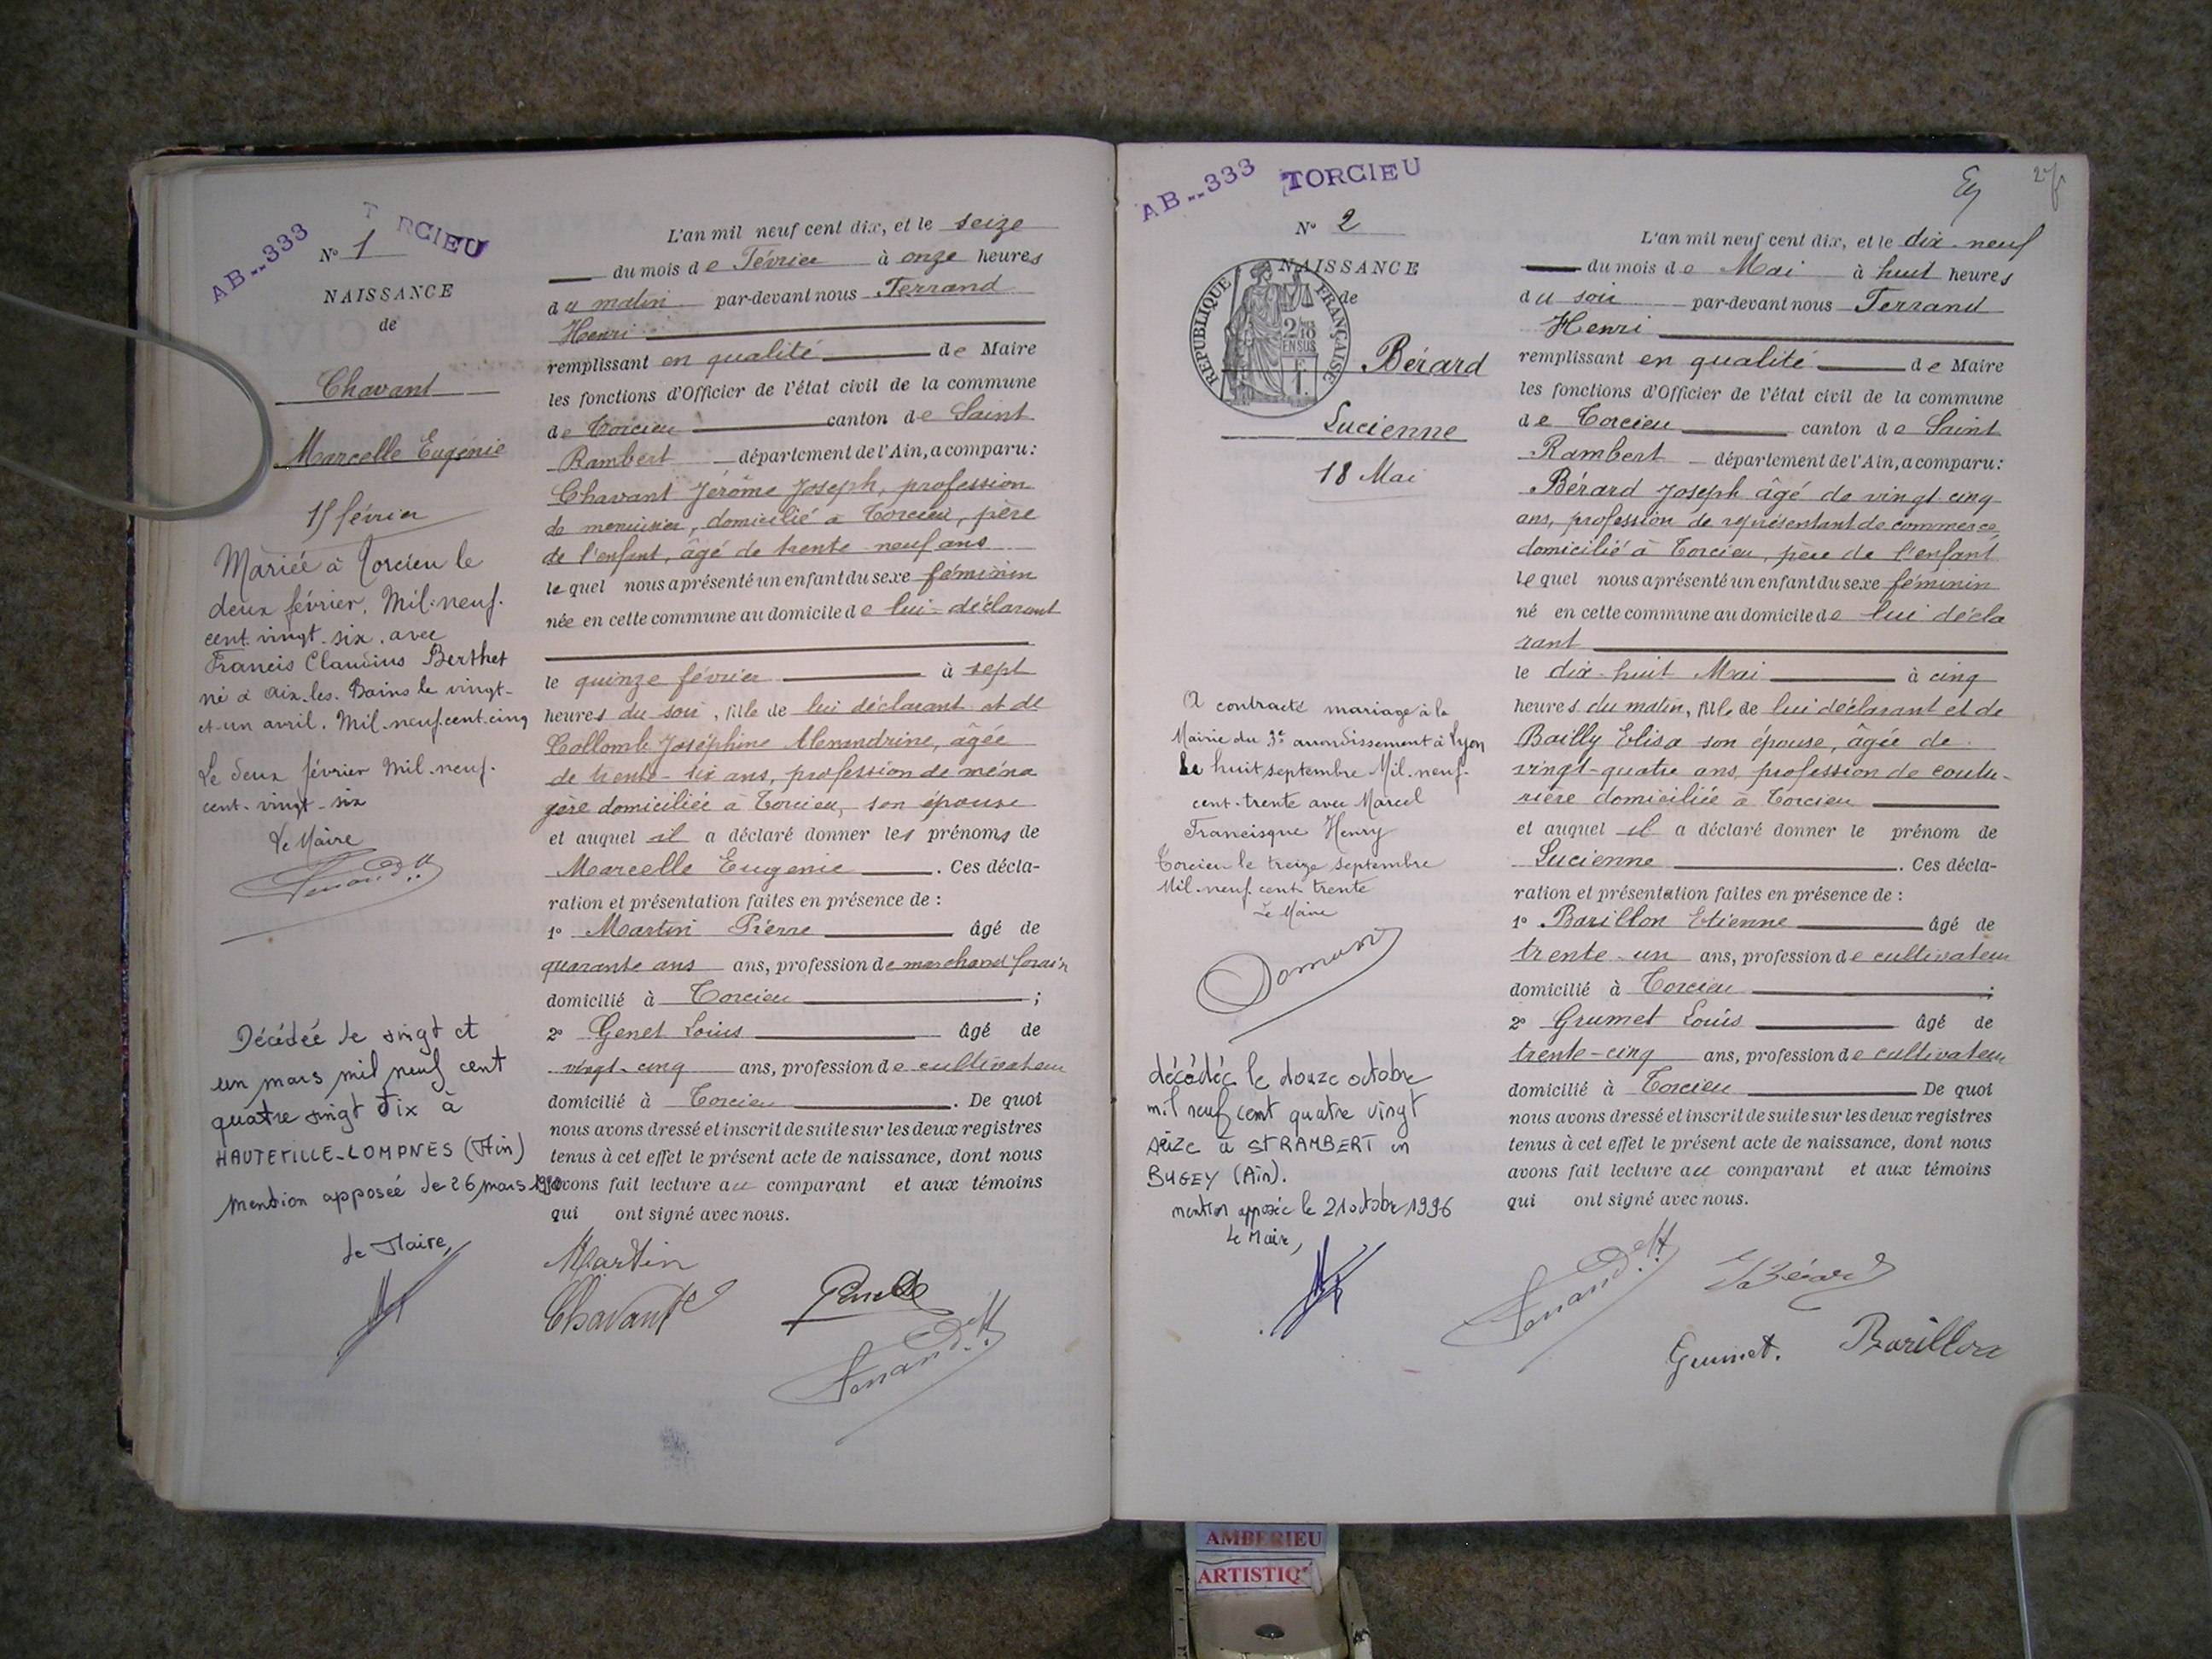 AB--333 T RCIEU
N° 1
NAISSANCE
de
Chavant
Marcelle Eugénie
15 février
Mariée à Torcieu le
deux février, Mil-neuf-
cent-vingt-six, avec
Francis Claudius Berthet
né à Aix-les-Bains le vingt-
et-un avril, Mil-neuf-cent-cinq
Le deux février Mil-neuf-
cent-vingt-six
Le Maire
Décédée le vingt et
un mars mil neuf cent
quatre vingt dix à
HAUTEVILLE-LOMPNES (Ain)
mention apposée le 26 mars 1990
Le Maire,
L'an mil neuf cent dix, et le seize
du mois de Février à onze heures
du matin par-devant nous Ferrand
Henri
remplissant en qualité de Maire
les fonctions d'Officier de l'état civil de la commune
de Torcieu canton de Saint
Rambert département de l'Ain, a comparu:
Chavant Jérôme Joseph, profession
de menuisier, domicilié à Torcieu, père
de l'enfant, âgé de trente neuf ans
le quel nous a présenté un enfant du sexe féminin
née en cette commune au domicile de lui-déclarant
le quinze février à sept
heures du soir, fille de lui déclarant et de
Collomb Joséphine Alexandrine, âgée
de trente-six ans, profession de ména
gère domiciliée à Torcieu, son épouse
et auquel il a déclaré donner les prénoms de
Marcelle Eugenie . Ces décla-
ration et présentation faites en présence de :
1° Martin Pierre âgé de
quarante ans ans, profession de marchand forain
domicilié à Torcieu ;
2° Genet Louis âgé de
vingt-cinq ans, profession de cultivateur
domicilié à Torcieu . De quoi
nous avons dressé et inscrit de suite sur les deux registres
tenus à cet effet le présent acte de naissance, dont nous
avons fait lecture au comparant et aux témoins
qui ont signé avec nous.
Martin
Chavant
AB--333 TORCIEU
27
N° 2
NAISSANCE
de
REPUBLIQUE FRANÇAISE
2/10
EN SUS
Bérard
Lucienne
18 Mai
A contracté mariage à la
Mairie du 3e arrondissement à Lyon
le huit septembre Mil-neuf-
cent-trente avec Marcel
Francisque Henry
Torcieu le treize septembre
Mil-neuf cent trente
Le Maire
décédée le douze octobre
mil neuf cent quatre vingt
seize à ST RAMBERT en
BUGEY (Ain).
mention apposée le 21 octobre 1996
Le Maire,
L'an mil neuf cent dix, et le dix-neuf
du mois de Mai à huit heures
du soir par-devant nous Ferrand
Henri
remplissant en qualité de Maire
les fonctions d'Officier de l'état civil de la commune
de Torcieu canton de Saint
Rambert département de l'Ain, a comparu:
Bérard Joseph âgé de vingt cinq
ans, profession de représentant de commerce
domicilié à Torcieu, père de l'enfant
le quel nous a présenté un enfant du sexe féminin
né en cette commune au domicile de lui décla
rant
le dix-huit Mai à cinq
heures du matin, fille de lui déclarant et de
Bailly Elisa son épouse, âgée de
vingt-quatre ans, profession de coutu-
rière domiciliée à Torcieu
et auquel il a déclaré donner le prénom de
Lucienne . Ces décla-
ration et présentation faites en présence de :
1° Barillon Etienne âgé de
trente-un ans, profession de cultivateur
domicilié à Torcieu ;
2° Grumet Louis âgé de
trente-cinq ans, profession de cultivateur
domicilié à Torcieu De quoi
nous avons dressé et inscrit de suite sur les deux registres
tenus à cet effet le présent acte de naissance, dont nous
avons fait lecture au comparant et aux témoins
qui ont signé avec nous.
Grumet. Barillon
AMBERIEU
ARTISTIQ